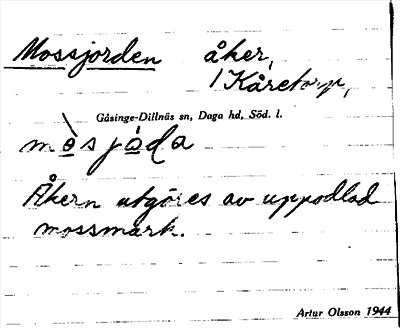 Mossjorden åker,
/ Kåretorp,
Gåsinge-Dillnäs sn, Daga hd, Söd. l.
mòsjåda
Åkern utgöres av uppodlad
mossmark.
Artur Olsson 1944